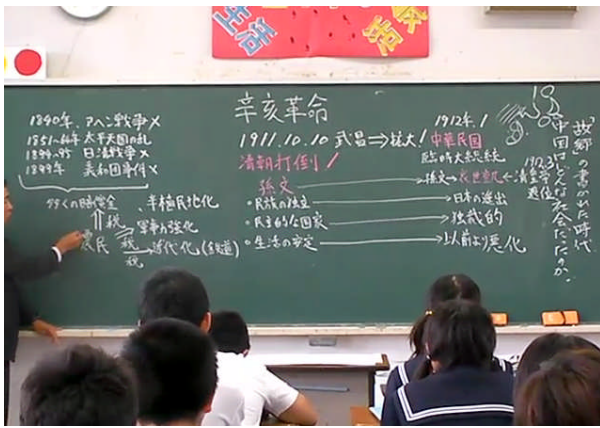 生活
活
辛亥革命
1840年 アヘン戦争×
1851~64年 太平天国の乱
1894~95 日清戦争×
1899年 義和団事件×
多くの賠償金
半植民地化
税
軍事力強化
農民
税
近代化(鉄道)
税
1911.10.10 武昌⇒拡大!
清朝打倒!
孫文
・民族の独立
・民主的な国家
・生活の安定
1912年.1
中華民国
臨時大総統
1912.3
孫文→袁世凱←清皇帝
退位
日本の進出
独裁的
以前より悪化
故郷の書かれた時代
中国はどんな社会だったのか。